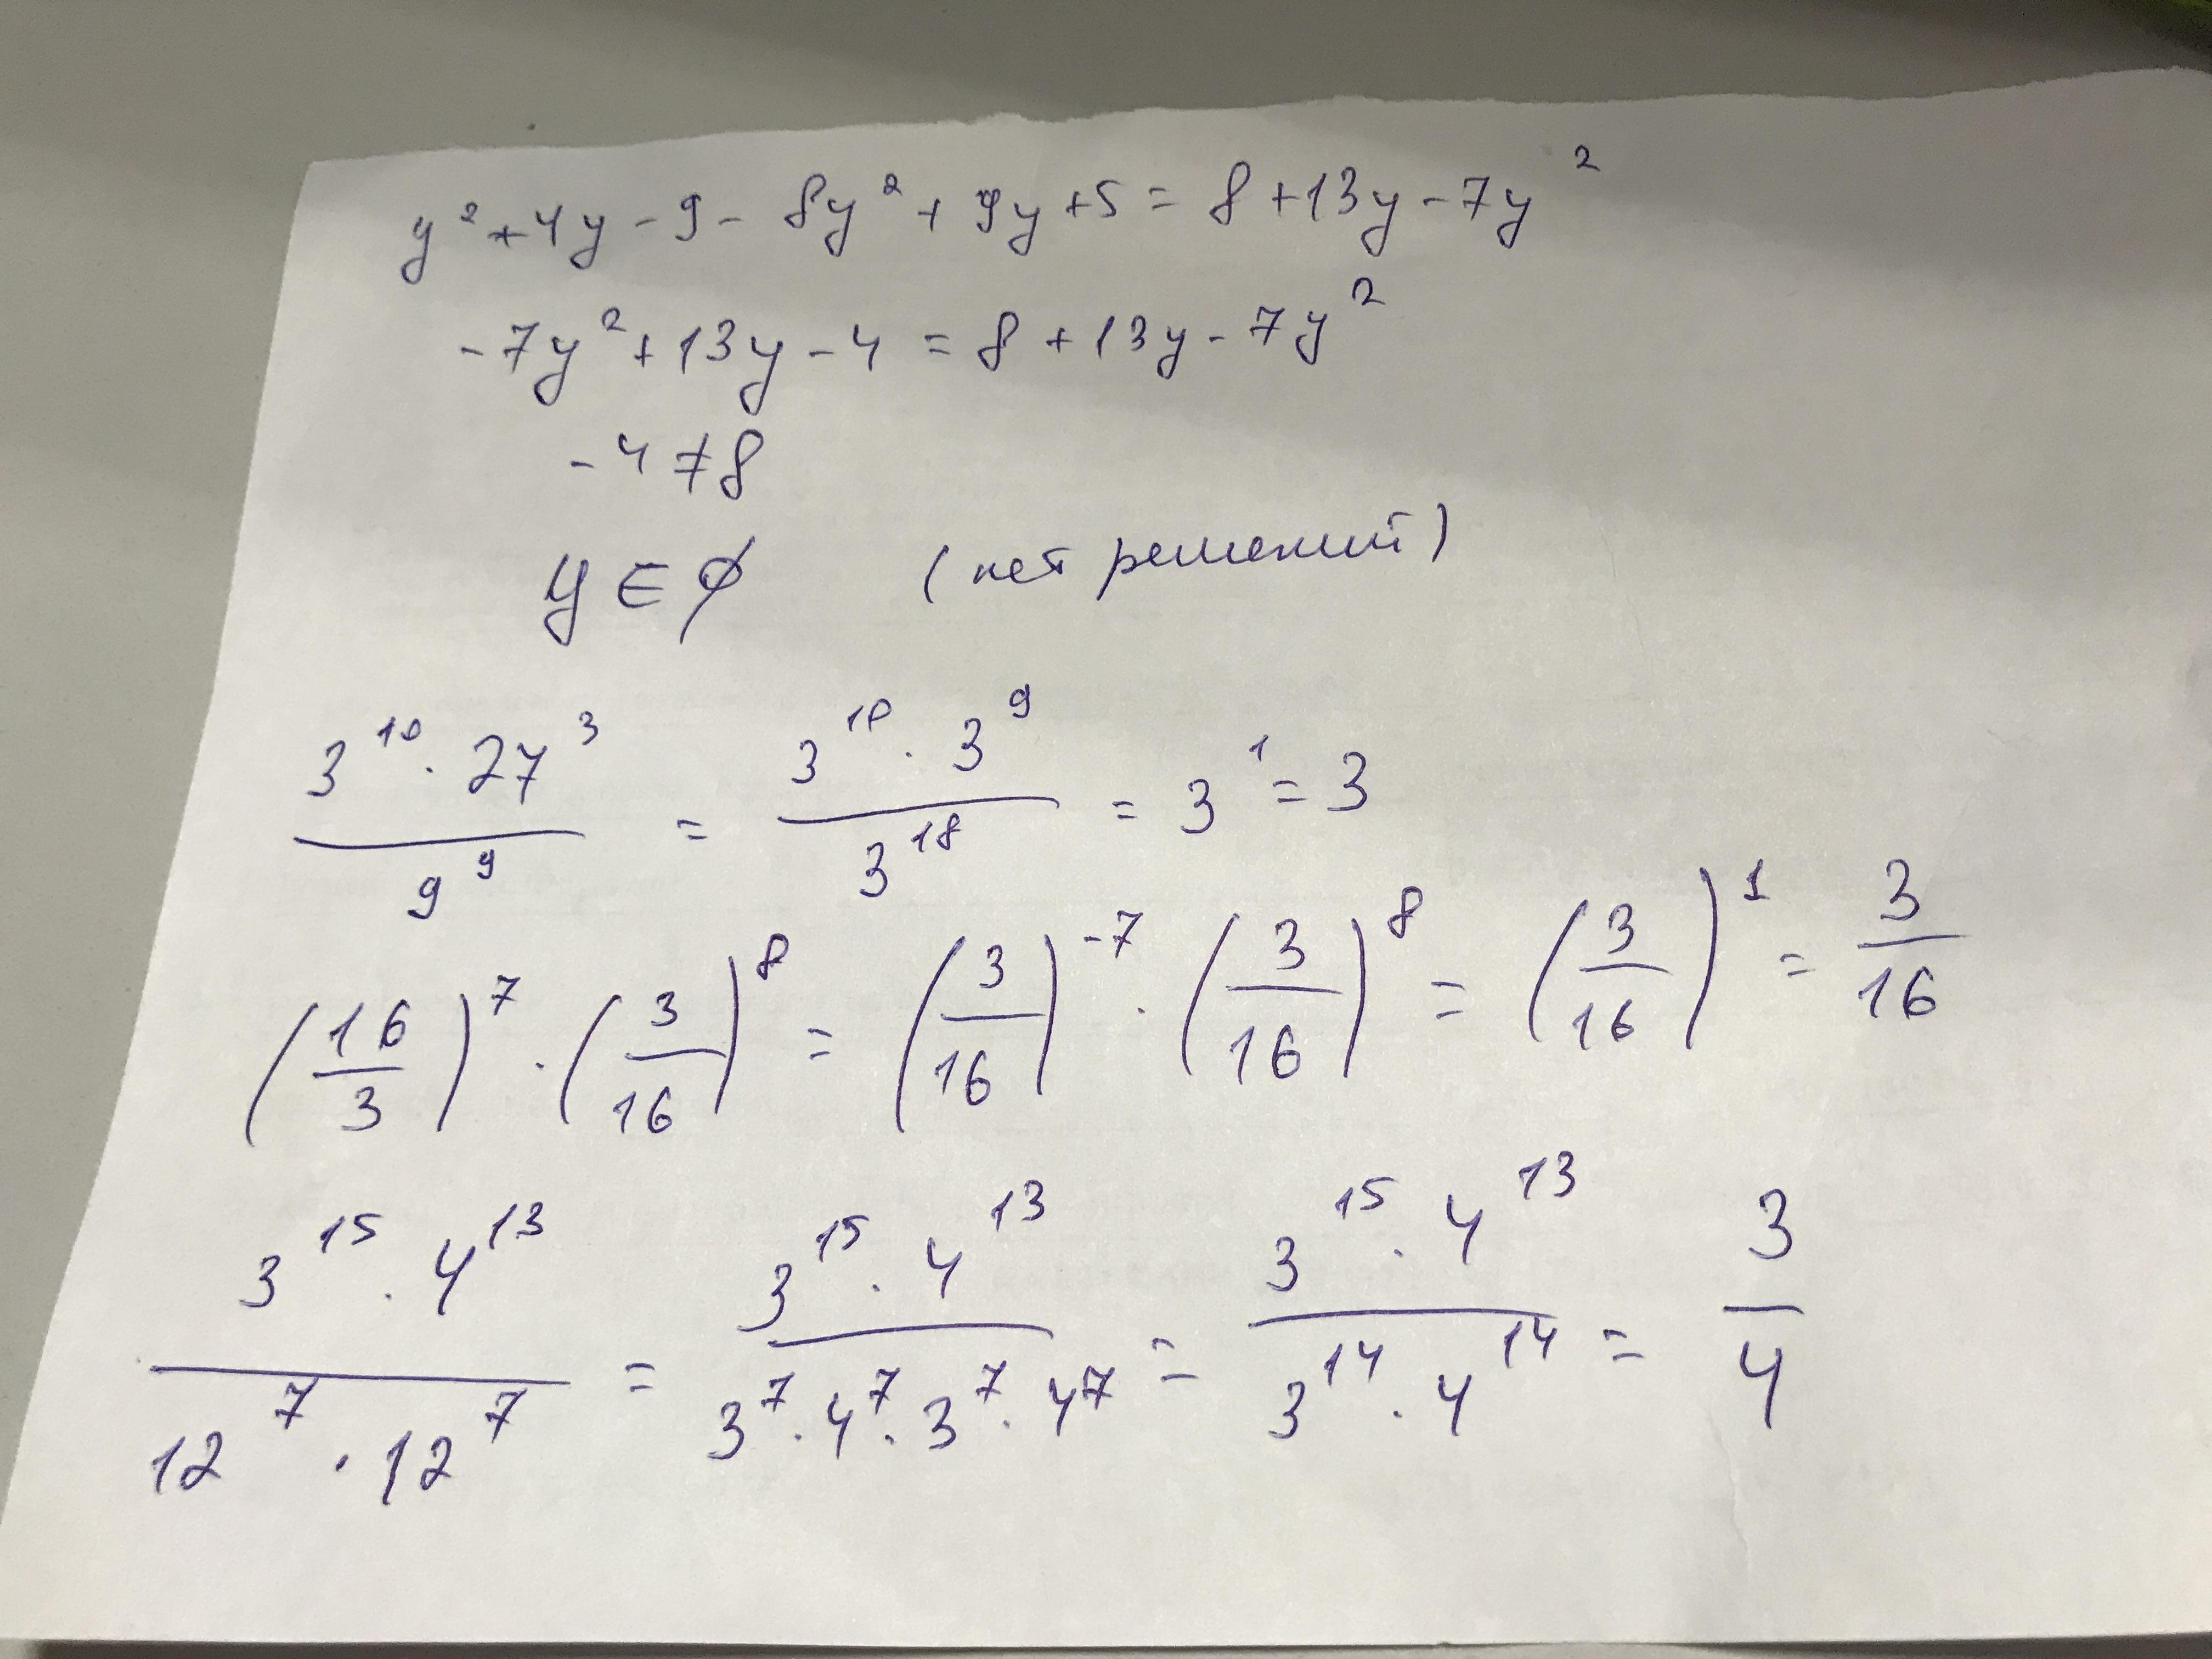 y² + 4y - 9 - 8y² + 9y + 5 = 8 + 13y - 7y²
-7y² + 13y - 4 = 8 + 13y - 7y²
-4 ≠ 8
y ∈ ∅ (нет решений)
3¹⁰ · 27³ / 9⁹ = 3¹⁰ · 3⁹ / 3¹⁸ = 3¹ = 3
(16/3)⁷ · (3/16)⁸ = (3/16)⁻⁷ · (3/16)⁸ = (3/16)¹ = 3/16
3¹⁵ · 4¹³ / 12⁷ · 12⁷ = 3¹⁵ · 4¹³ / 3⁷ · 4⁷ · 3⁷ · 4⁷ = 3¹⁵ · 4¹³ / 3¹⁴ · 4¹⁴ = 3/4